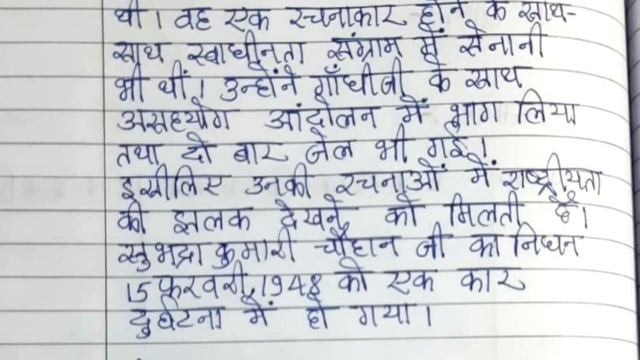 थी। वह एक रचनाकार होने के साथ-
साथ स्वाधीनता संग्राम में सेनानी
भी थीं। उन्होंने गाँधीजी के साथ
असहयोग आंदोलन में भाग लिया
तथा दो बार जेल भी गई।
इसीलिए उनकी रचनाओं में राष्ट्रीयता
की झलक देखने को मिलती है।
सुभद्रा कुमारी चौहान जी का निधन
15 फरवरी, 1948 को एक कार
दुर्घटना में हो गया।